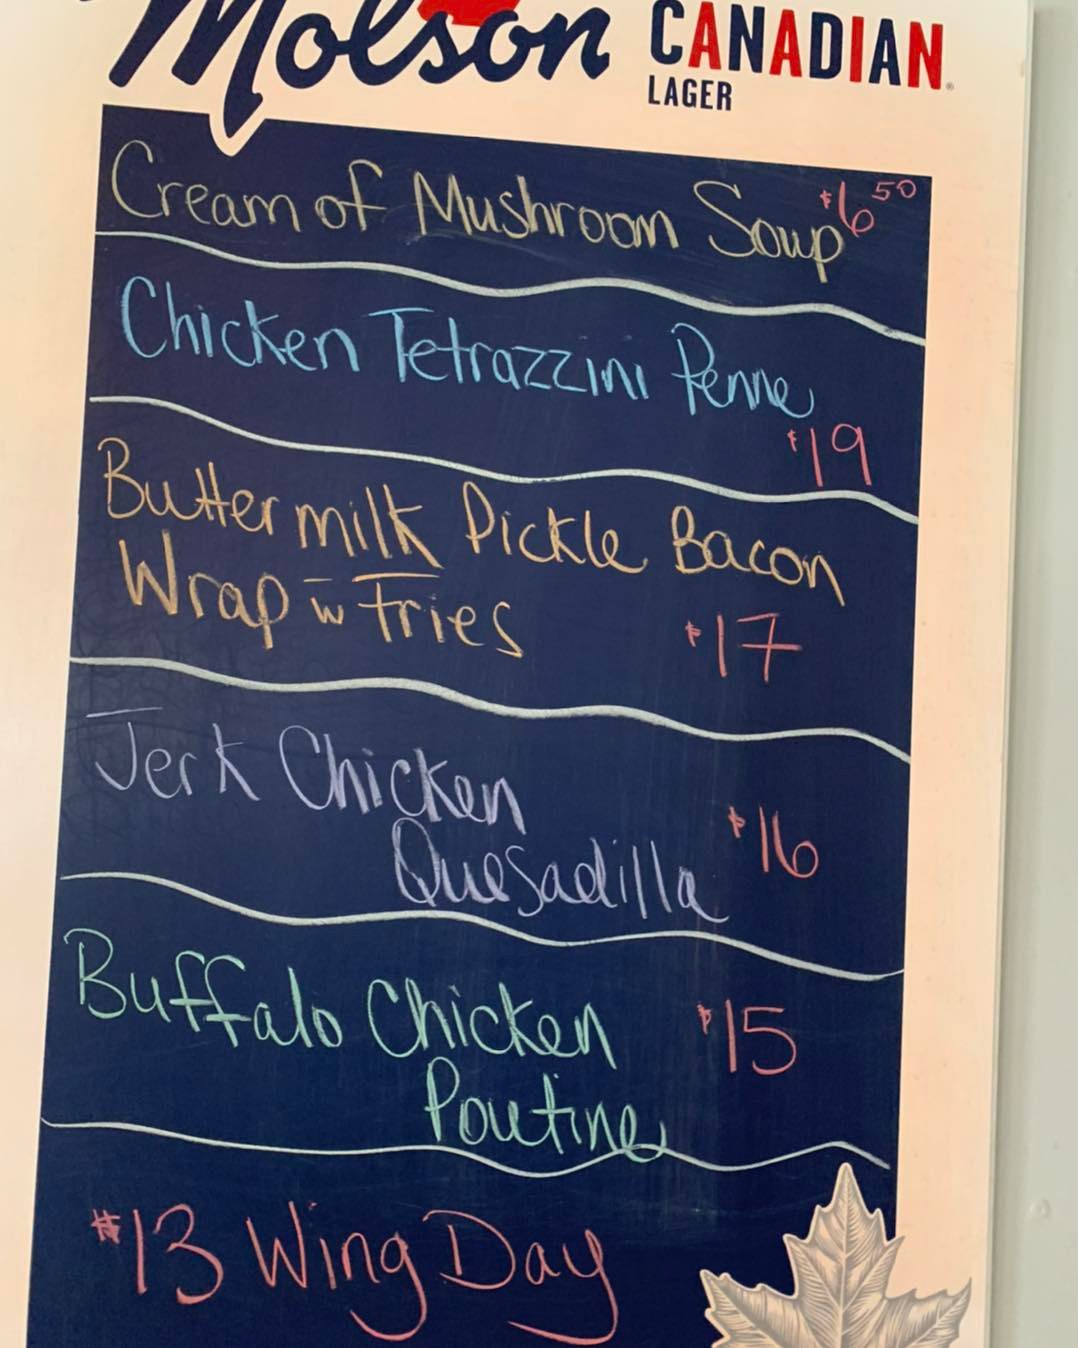 Molson CANADIAN
LAGER
Cream of Mushroom Soup $6 50
Chicken Tetrazzini Penne
$19
Buttermilk Pickle Bacon
Wrap w Fries $17
Jerk Chicken
Quesadilla $16
Buffalo Chicken $15
Poutine
$13 Wing Day